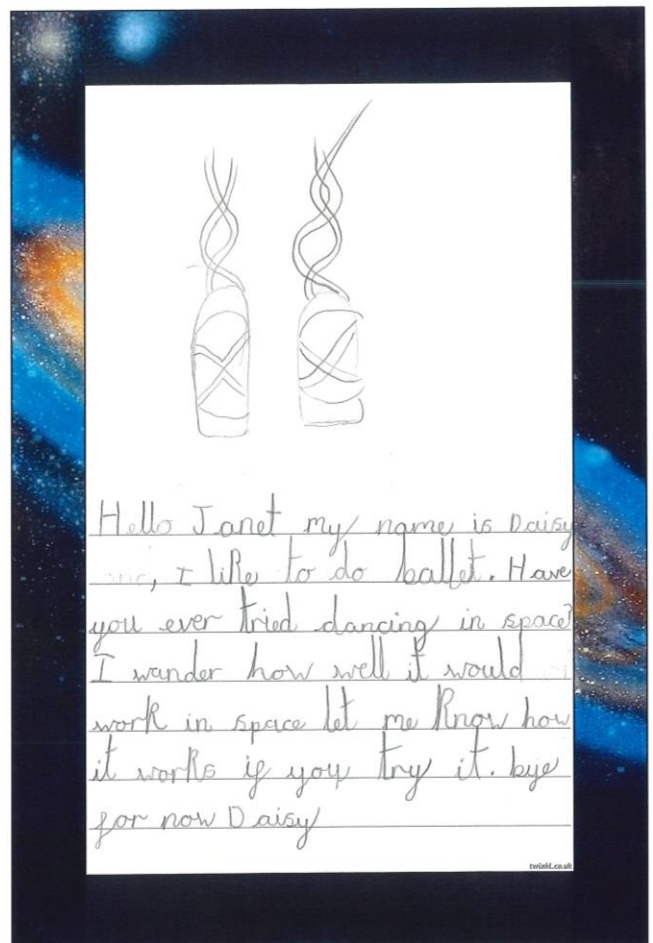 Hello Janet my name is Daisy
, I like to do ballet. Have
you ever tried dancing in space?
I wander how well it would
work in space let me know how
it works if you try it. bye
for now Daisy
twinkl.co.uk